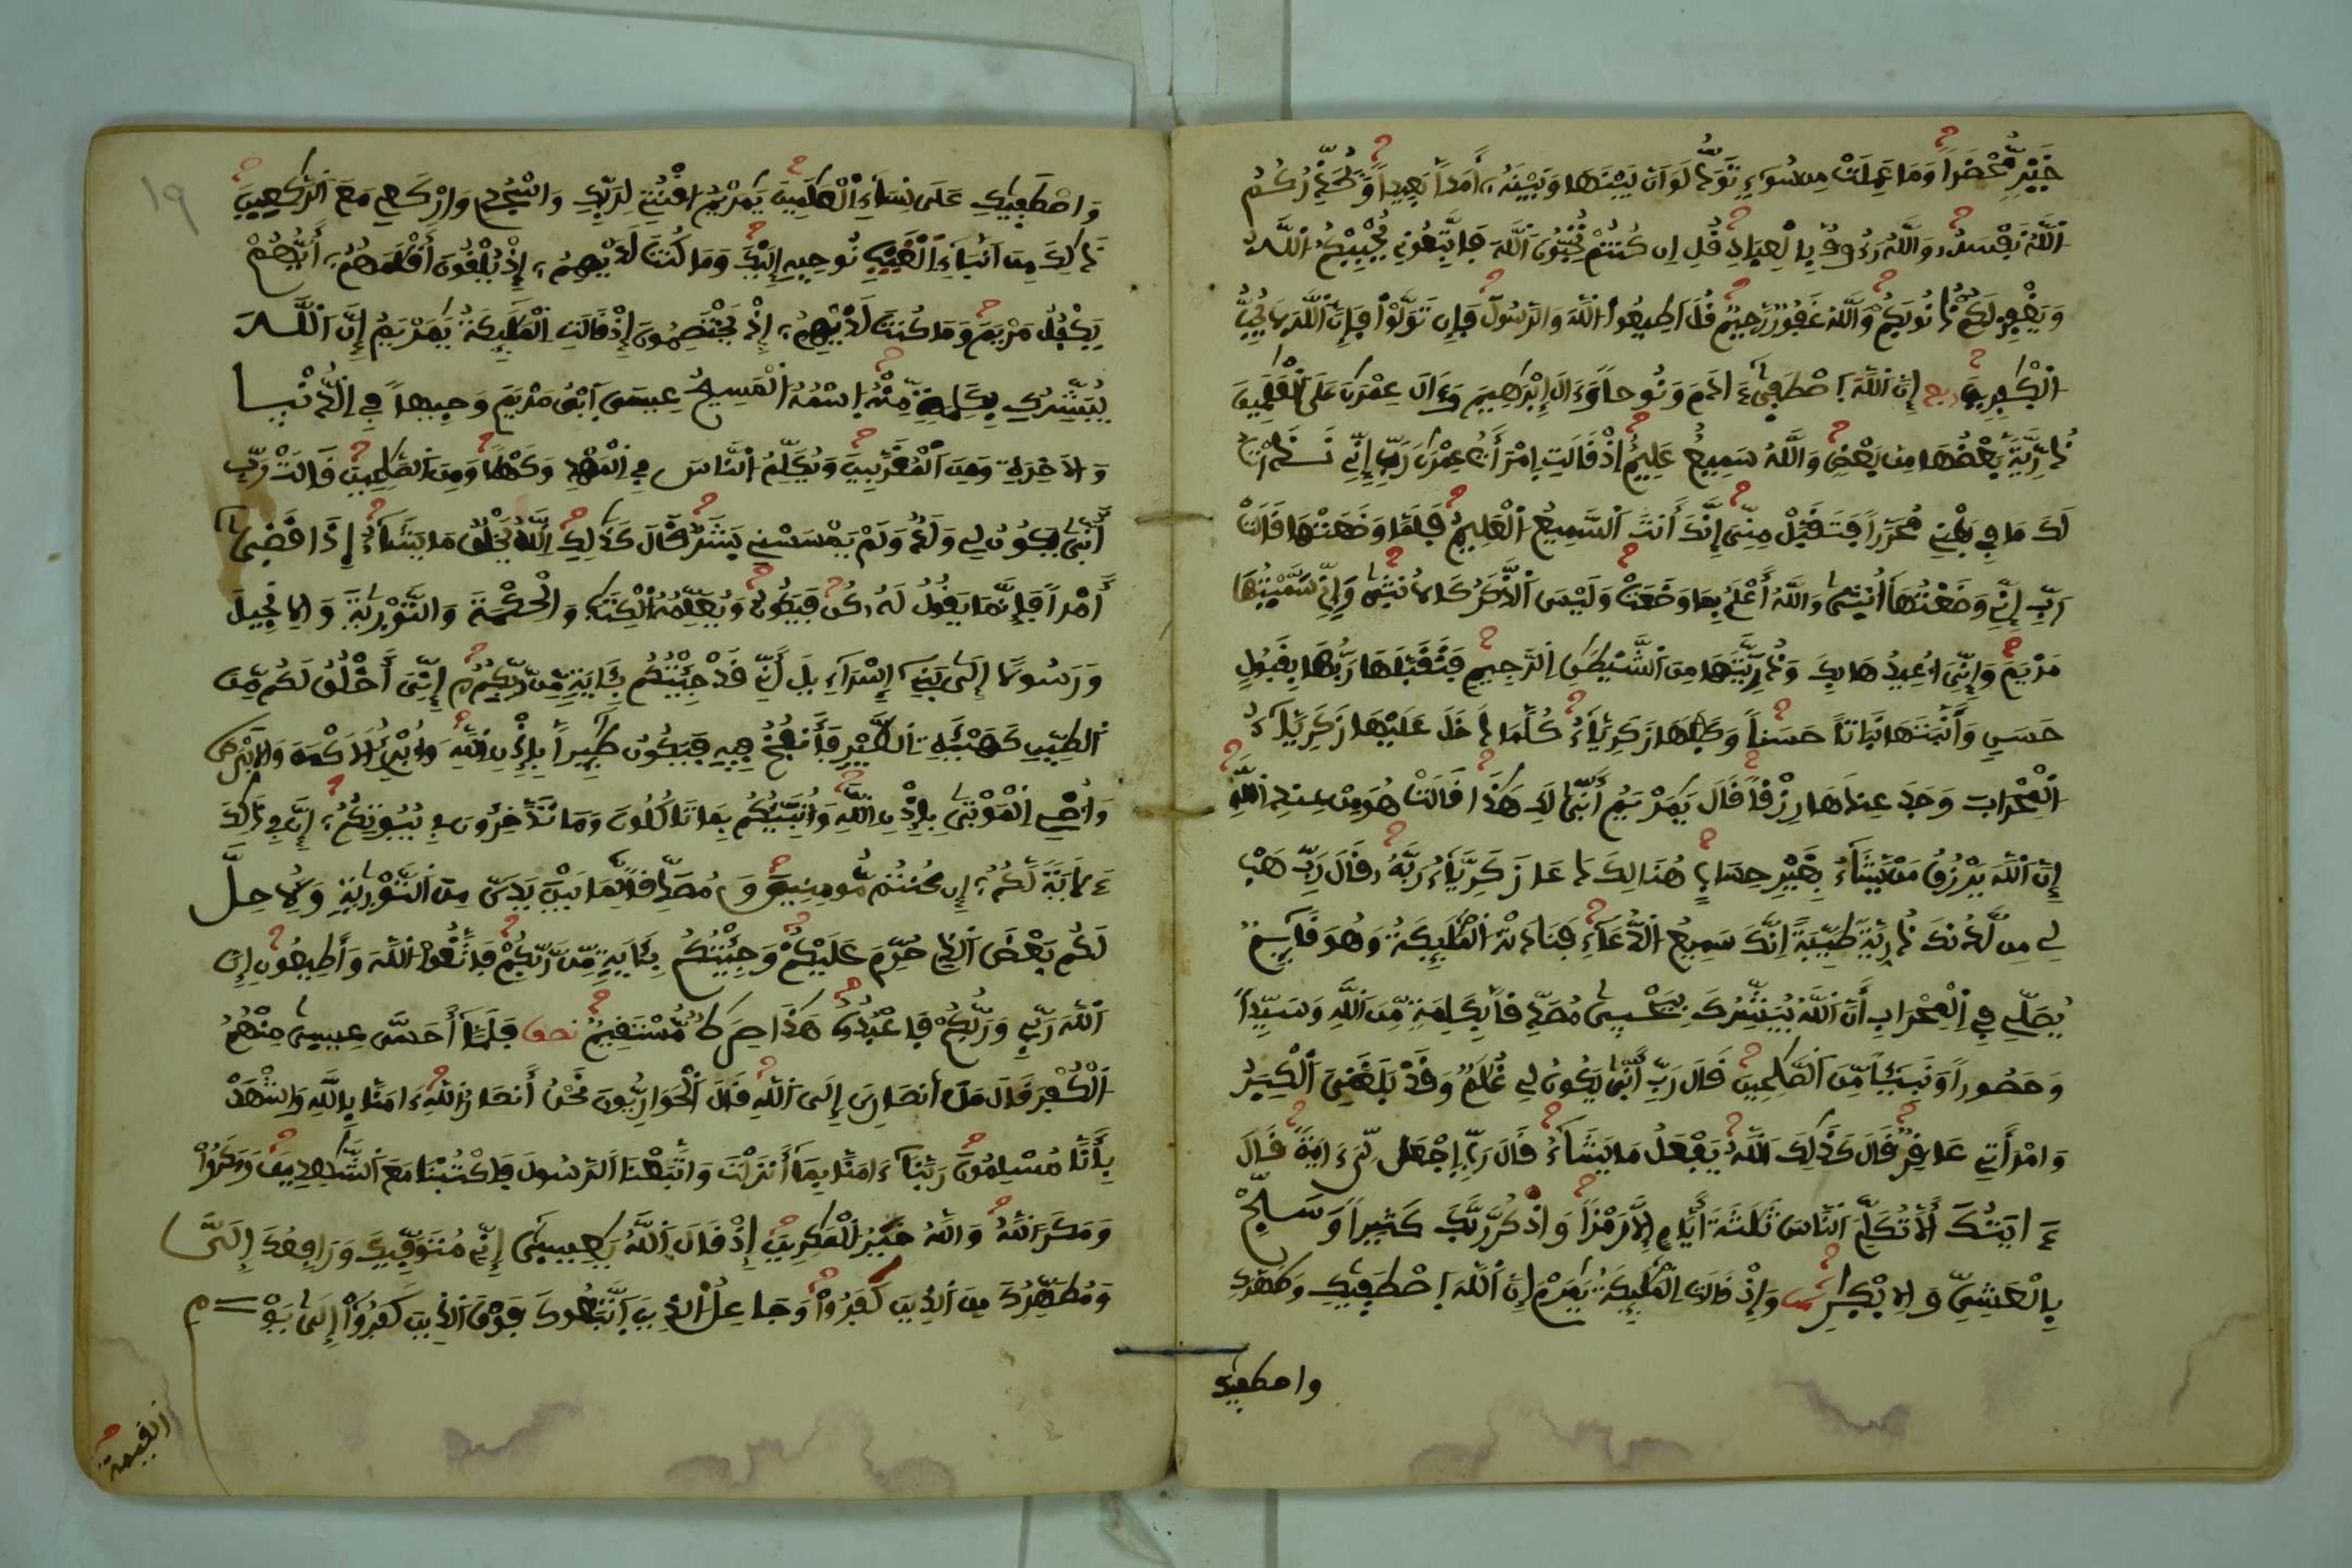 خَيْرٍ مُّحْضَراً وَمَا عَمِلَتْ مِن سُوٓءٍ تَوَدُّ لَوَ اَنَّ بَيْنَهَا وَبَيْنَهُۥ أَمَداً بَعِيداً وَيُحَذِّرُكُمُ
اُللَّهُ نَفْسَهُۥ وَاللَّهُ رَءُوفٌ بِالْعِبَادِ قُلِ اِن كُنتُمْ تُحِبُّونَ اَللَّهَ فَاتَّبِعُونِي يُحْبِبْكُمُ اُللَّهُ
وَيَغْفِرْ لَكُمْ ذُنُوبَكُمْ وَاللَّهُ غَفُورٌ رَّحِيمٌ قُلَ اَطِيعُوا اُللَّهَ وَالرَّسُولَ فَإِن تَوَلَّوْا فَإِنَّ اَللَّهَ لَا يُحِبُّ
اُلْكٰفِرِينَ ربع إِنَّ اَللَّهَ اَصْطَفِىٰٓ ءَادَمَ وَنُوحاً وَءَالَ إِبْرَٰهِيمَ وَءَالَ عِمْرَٰنَ عَلَى اَلْعَٰلَمِينَ
ذُرِّيَّةَۢ بَعْضُهَا مِنۢ بَعْضٍ وَاللَّهُ سَمِيعٌ عَلِيمٌ إِذْ قَالَتِ اِمْرَأَتُ عِمْرَٰنَ رَبِّ إِنِّي نَذَرْتُ
لَكَ مَا فِي بَطْنِي مُحَرَّراً فَتَقَبَّلْ مِنِّيَ إِنَّكَ أَنتَ اَلسَّمِيعُ اُلْعَلِيمُ فَلَمَّا وَضَعَتْهَا قَالَتْ
رَبِّ إِنِّي وَضَعْتُهَآ أُنثَىٰ وَاللَّهُ أَعْلَمُ بِمَا وَضَعَتْ وَلَيْسَ اَلذَّكَرُ كَالُانثَىٰ وَإِنِّي سَمَّيْتُهَا
مَرْيَمَ وَإِنِّيَ أُعِيذُهَا بِكَ وَذُرِّيَّتَهَا مِنَ اَلشَّيْطَٰنِ اِلرَّجِيمِ فَتَقَبَّلَهَا رَبُّهَا بِقَبُولٍ
حَسَنٍ وَأَنۢبَتَهَا نَبَاتاً حَسَناً وَكَفَلَهَا زَكَرِيَّآءُ كُلَّمَا دَخَلَ عَلَيْهَا زَكَرِيَّآءُ
اُلْمِحْرَابَ وَجَدَ عِندَهَا رِزْقاً قَالَ يَٰمَرْيَمُ أَنّىٰ لَكِ هَٰذَا قَالَتْ هُوَ مِنْ عِندِ اِللَّهِ
إِنَّ اَللَّهَ يَرْزُقُ مَنْ يَّشَآءُ بِغَيْرِ حِسَابٍ هُنَالِكَ دَعَا زَكَرِيَّآءُ رَبَّهُۥ قَالَ رَبِّ هَبْ
لِي مِن لَّدُنكَ ذُرِّيَّةً طَيِّبَةً اِنَّكَ سَمِيعُ اُلدُّعَآءِ فَنَادَتْهُ اُلْمَلَٰٓئِكَةُ وَهُوَ قَآئِمٌ
يُصَلِّي فِي اِلْمِحْرَابِ أَنَّ اَللَّهَ يُبَشِّرُكَ بِيَحْيىٰ مُصَدِّقاً بِكَلِمَةٍ مِّنَ اَللَّهِ وَسَيِّداً
وَحَصُوراً وَنَبِيـٓئاً مِّنَ اَلصَّٰلِحِينَ قَالَ رَبِّ أَنّىٰ يَكُونُ لِي غُلَٰمٌ وَقَدْ بَلَغَنِيَ اَلْكِبَرُ
وَامْرَأَتِي عَاقِرٌ قَالَ كَذَٰلِكَ اَللَّهُ يَفْعَلُ مَا يَشَآءُ قَالَ رَبِّ اِجْعَل لِّيَ ءَايَةً قَالَ
ءَايَتُكَ أَلَّا تُكَلِّمَ اَلنَّاسَ ثَلَٰثَةَ أَيَّامٍ اِلَّا رَمْزاً وَاذْكُر رَّبَّكَ كَثِيراً وَسَبِّحْ
بِالْعَشِيِّ وَالِابْكٰرِ ثمن وَإِذْ قَالَتِ اِلْمَلَٰٓئِكَةُ يَٰمَرْيَمُ إِنَّ اَللَّهَ اَصْطَفىٰكِ وَطَهَّرَكِ
واصطفىك
وَاصْطَفىٰكِ عَلَىٰ نِسَآءِ اِلْعَٰلَمِينَ يَٰمَرْيَمُ اُقْنُتِي لِرَبِّكِ وَاسْجُدِي وَارْكَعِي مَعَ اَلرَّٰكِعِينَ
ذَٰلِكَ مِنَ اَنۢبَآءِ اِلْغَيْبِ نُوحِيهِ إِلَيْكَ وَمَا كُنتَ لَدَيْهِمُۥٓ إِذْ يُلْقُونَ أَقْلَٰمَهُمُۥٓ أَيُّهُمْ
يَكْفُلُ مَرْيَمَ وَمَا كُنتَ لَدَيْهِمُۥٓ إِذْ يَخْتَصِمُونَ إِذْ قَالَتِ اِلْمَلَٰٓئِكَةُ يَٰمَرْيَمُ إِنَّ اَللَّهَ
يُبَشِّرُكِ بِكَلِمَةٍ مِّنْهُ اُسْمُهُ اُلْمَسِيحُ عِيسَى اَبْنُ مَرْيَمَ وَجِيهاً فِي اِلدُّنْيَا
وَالَاخِرَةِ وَمِنَ اَلْمُقَرَّبِينَ وَيُكَلِّمُ اُلنَّاسَ فِي اِلْمَهْدِ وَكَهْلًا وَمِنَ اَلصَّٰلِحِينَ قَالَتْ رَبِّ
أَنّىٰ يَكُونُ لِي وَلَدٌ وَلَمْ يَمْسَسْنِي بَشَرٌ قَالَ كَذَٰلِكِ اِللَّهُ يَخْلُقُ مَا يَشَآءُ إِذَا قَضىٰٓ
أَمْراً فَإِنَّمَا يَقُولُ لَهُۥ كُن فَيَكُونُ وَيُعَلِّمُهُ اُلْكِتَٰبَ وَالْحِكْمَةَ وَالتَّوْرَىٰةَ وَالِانجِيلَ
وَرَسُولًا إِلَىٰ بَنِيٓ إِسْرَآءِيلَ أَنِّي قَدْ جِئْتُكُم بِـَٔايَةٍ مِّن رَّبِّكُمُۥٓ إِنِّيَ أَخْلُقُ لَكُم مِّنَ
اَلطِّينِ كَهَيْـَٔةِ اِلطَّيْرِ فَأَنفُخُ فِيهِ فَيَكُونُ طَٰٓئِراً بِإِذْنِ اِللَّهِ وَأُبْرِئُ اُلَاكْمَهَ وَالَابْرَصَ
وَأُحْيِ اِلْمَوْتىٰ بِإِذْنِ اِللَّهِ وَأُنَبِّئُكُم بِمَا تَاكُلُونَ وَمَا تَدَّخِرُونَ فِي بُيُوتِكُمُۥٓ إِنَّ فِي ذَٰلِكَ
ءَلَايَةً لَّكُمُۥٓ إِن كُنتُم مُّومِنِينَ وَمُصَدِّقاً لِّمَا بَيْنَ يَدَيَّ مِنَ اَلتَّوْرَىٰةِ وَلِأُحِلَّ
لَكُم بَعْضَ اَلَّذِي حُرِّمَ عَلَيْكُمْ وَجِئْتُكُم بِـَٔايَةٍ مِّن رَّبِّكُمْ فَاتَّقُوا اُللَّهَ وَأَطِيعُونِ إِنَّ
اَللَّهَ رَبِّي وَرَبُّكُمْ فَاعْبُدُوهُ هَٰذَا صِرَٰطٌ مُّسْتَقِيمٌ نصف فَلَمَّآ أَحَسَّ عِيسىٰ مِنْهُمُ
اُلْكُفْرَ قَالَ مَنَ اَنصَارِيَ إِلَى اَللَّهِ قَالَ اَلْحَوَارِيُّونَ نَحْنُ أَنصَارُ اُللَّهِ ءَامَنَّا بِاللَّهِ وَاشْهَدْ
بِأَنَّا مُسْلِمُونَ رَبَّنَآ ءَامَنَّا بِمَآ أَنزَلْتَ وَاتَّبَعْنَا اَلرَّسُولَ فَاكْتُبْنَا مَعَ اَلشَّٰهِدِينَ وَمَكَرُوا
وَمَكَرَ اَللَّهُ وَاللَّهُ خَيْرُ اُلْمَٰكِرِينَ إِذْ قَالَ اَللَّهُ يَٰعِيسىٰٓ إِنِّي مُتَوَفِّيكَ وَرَافِعُكَ إِلَيَّ
وَمُطَهِّرُكَ مِنَ اَلذِينَ كَفَرُوا وَجَاعِلُ اُلذِينَ اَتَّبَعُوكَ فَوْقَ اَلذِينَ كَفَرُوٓا إِلَىٰ يَوْمِ
القيمة
١٩